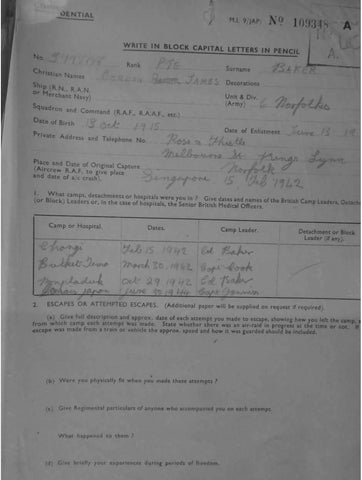 DENTIAL
M.I. 9/JAP/ No 109348 A
WRITE IN BLOCK CAPITAL LETTERS IN PENCIL
No. Rank PTE Surname BAKER
Christian Names JAMES Decorations
Ship (R.N., R.A.N. or Merchant Navy) Unit & Div. (Army) 6 Norfolks
Squadron and Command (R.A.F., R.A.A.F., etc.)
Date of Birth 13 Oct 1915 Date of Enlistment June 13
Private Address and Telephone No. Rose & Thistle
Melbourne St Kings Lynn
Norfolk
Place and Date of Original Capture Singapore 15 Feb 1942
(Aircrew R.A.F. to give place and date of a/c crash).
1. What camps, detachments or hospitals were you in? Give dates and names of the British Camp Leaders, Detach
(or Block) Leaders or, in the case of hospitals, the Senior British Medical Officers.
Camp or Hospital. Dates. Camp Leader. Detachment or Block Leader (if any).
Changi Feb 15 1942 Baker
March 30, 1942 Capt Cook
Oct 29 1942 Baker
June 30 1944 Capt
2. ESCAPES OR ATTEMPTED ESCAPES. (Additional paper will be supplied on request if required).
(a) Give full description and approx. date of each attempt you made to escape, showing how you left the camp,
from which camp each attempt was made. State whether there was an air-raid in progress at the time or not. If
escape was made from a train or vehicle the approx. speed and how it was guarded should be included.
(b) Were you physically fit when you made these attempts ?
(c) Give Regimental particulars of anyone who accompanied you on each attempt.
What happened to them ?
(d) Give briefly your experiences during periods of freedom.